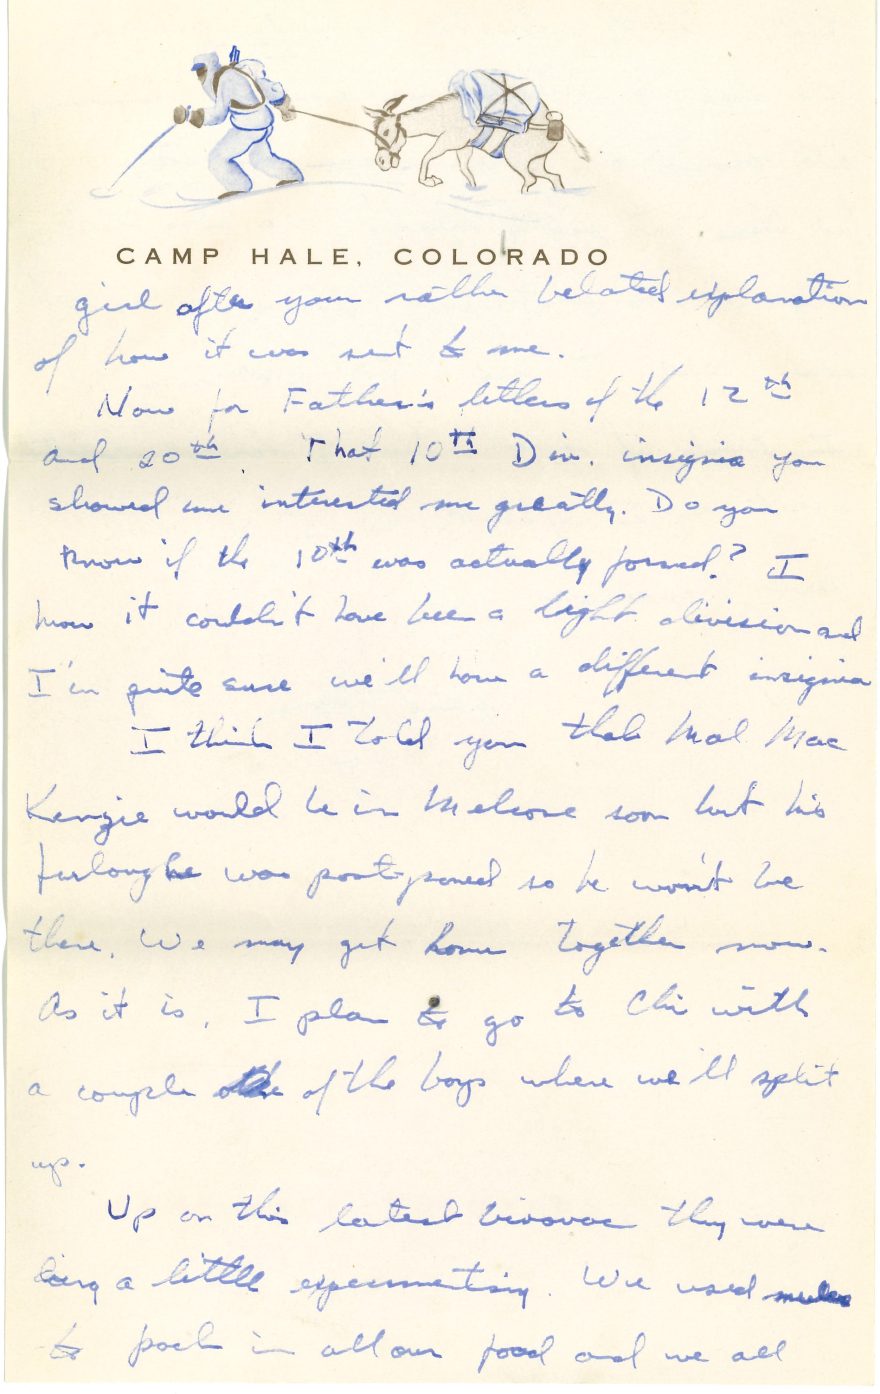 CAMP HALE, COLORADO
girl after your rather belated explanation
of how it was sent to me.
Now for Father's letters of the 12th
and 20th. That 10th Div. insignia you
showed me interested me greatly. Do you
know if the 10th was actually formed? I
know it couldn't have been a light division and
I'm quite sure we'll have a different insignia
I think I told you that Mal Mac
Kenzie would be in Melrose soon but his
furlough was postponed so he won't be
there. We may get home together now.
As it is, I plan to go to Chi with
a couple of the boys where we'll split
up.
Up on this latest bivouac they were
doing a little experimenting. We used mules
to pack in all our food and we all